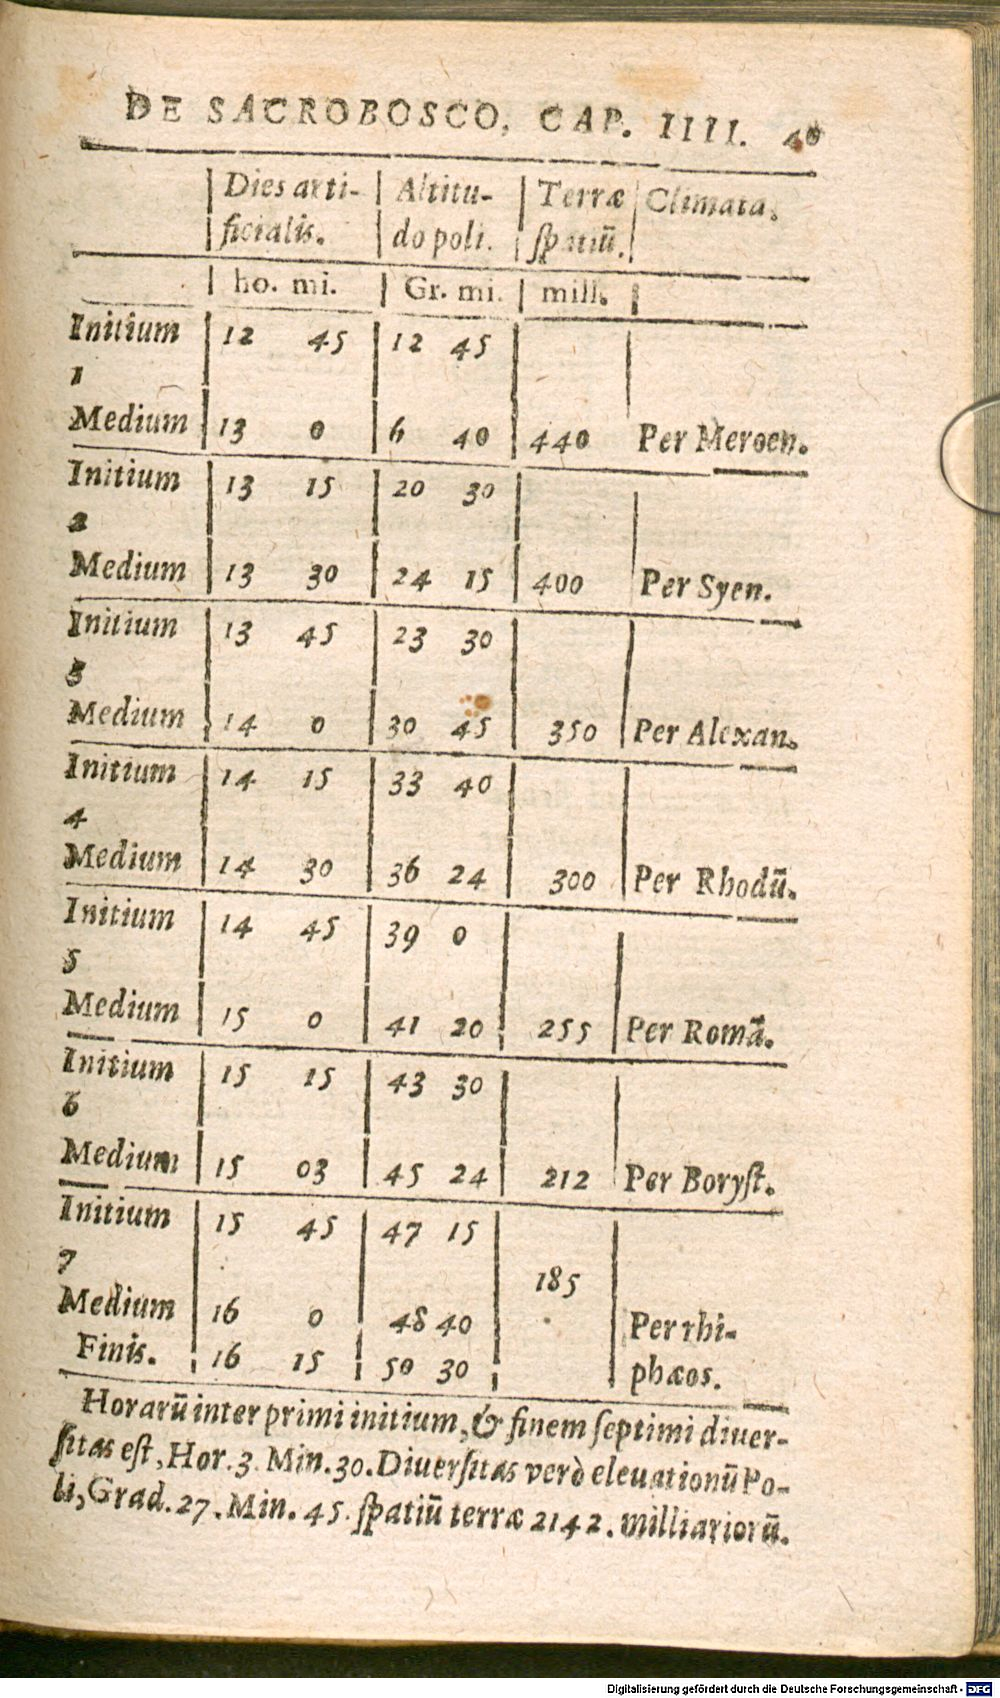 DE SACROBOSCO, CAP. IIII. 40
Dies arti- Altitu- Terræ Climata.
ficialis. do poli. ſpatiũ.
ho. mi. Gr. mi. mill.
Initium 12 45 12 45
1
Medium 13 0 6 40 440 Per Meroen.
Initium 13 15 20 30
2
Medium 13 30 24 15 400 Per Syen.
Initium 13 45 23 30
3
Medium 14 0 30 45 350 Per Alexan.
Initium 14 15 33 40
4
Medium 14 30 36 24 300 Per Rhodũ.
Initium 14 45 39 0
5
Medium 15 0 41 20 255 Per Romã.
Initium 15 15 43 30
6
Medium 15 03 45 24 212 Per Boryſt.
Initium 15 45 47 15
7 185
Medium 16 0 48 40 Per rhi-
Finis. 16 15 50 30 phæos.
Horarũ inter primi initium, & finem ſeptimi diuer-
ſitas eſt, Hor. 3. Min. 30. Diuerſitas verò eleuationũ Po-
li, Grad. 27. Min. 45. ſpatiũ terræ 2142. milliariorũ.
Digitalisierung gefördert durch die Deutsche Forschungsgemeinschaft - DFG